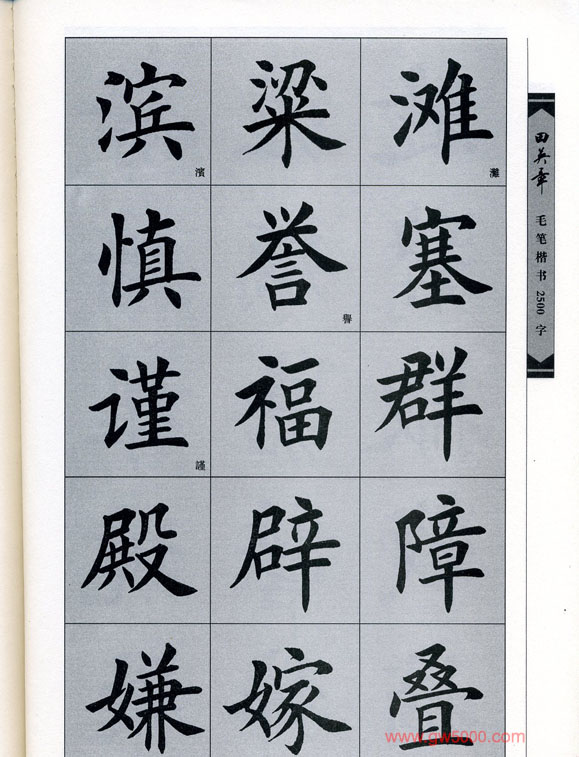 滨 粱 滩
濱 灘
慎 誉 塞
譽
谨 福 群
謹
殿 辟 障
嫌 嫁 叠
田英章 毛笔楷书2500字
www.gw5000.com